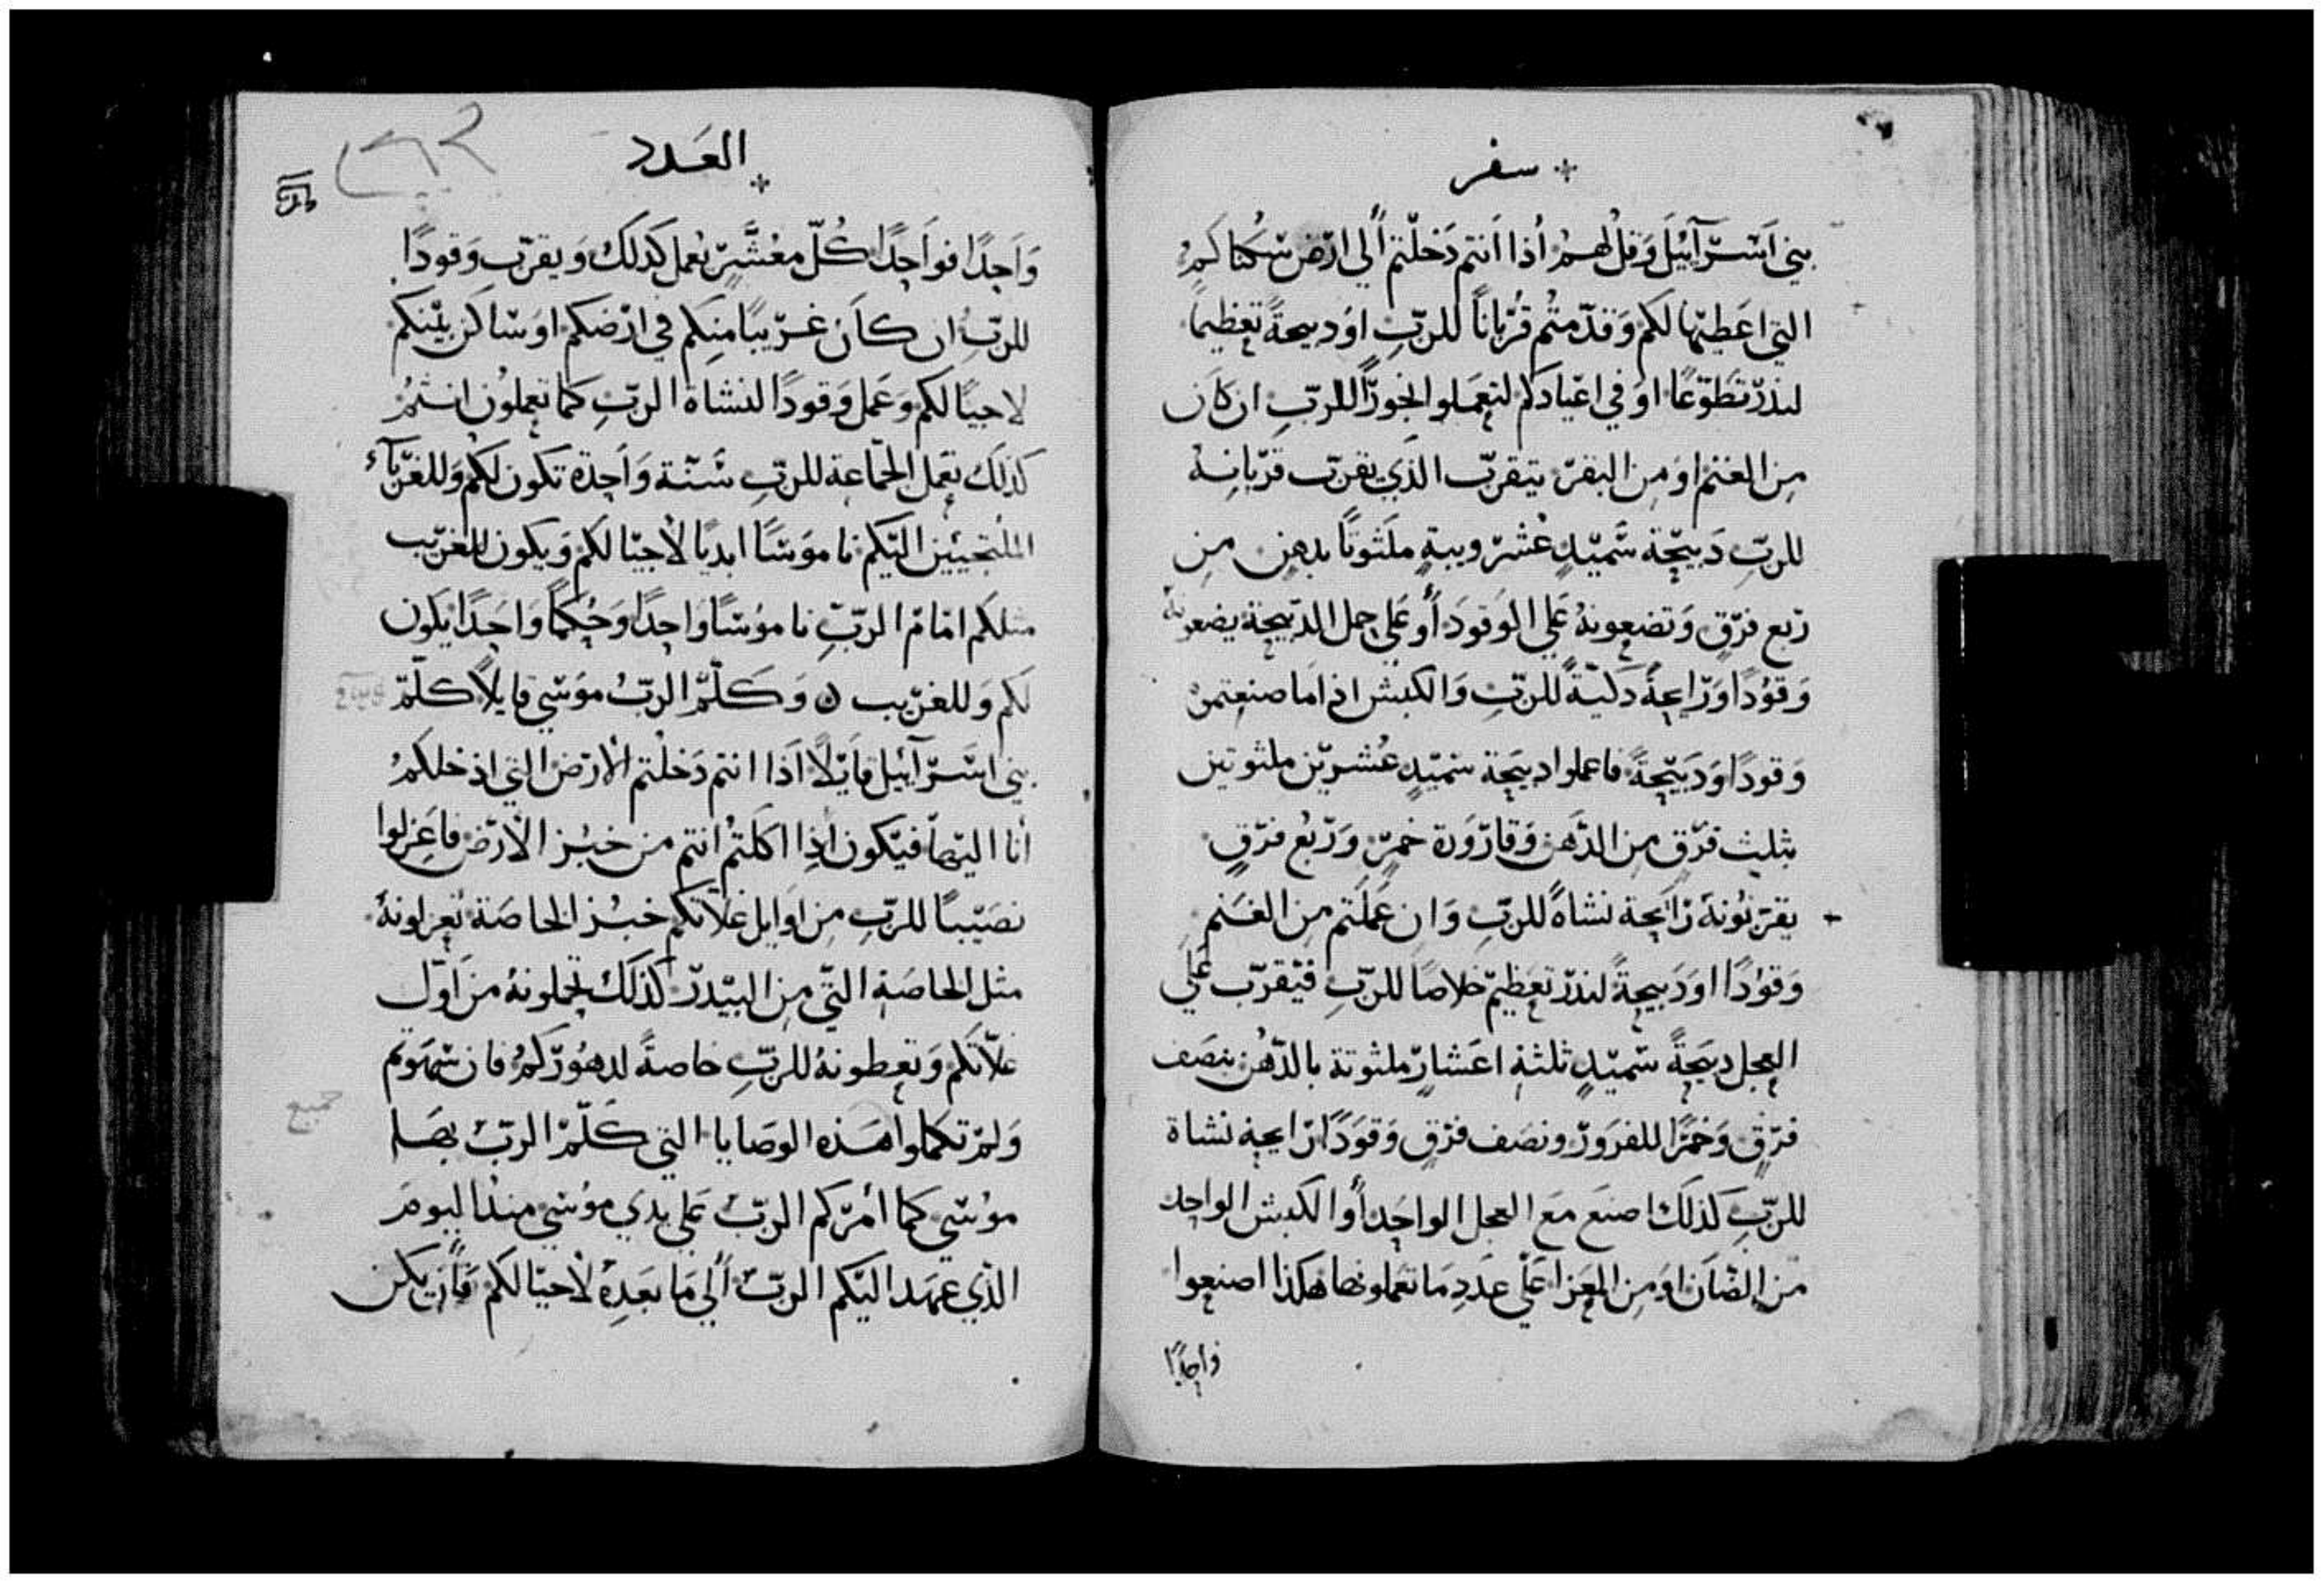 سفر
بني اسرآئيل وقل لهم أذا انتم دخلتم ألي ارض سكناكم
التي اعطيتها لكم وقدمتم قربانًا للربِ او دبيحةً تعظيمًا
لندر تطوعًا او في اعيادكم لتعملوا بخورًا للربِ ان كان
من الغنم او من البقر يتقرب الذي يقرب قربانه
للربِ دبيحة سميدٍ عشر ويبةٍ ملثوتًا بدهنٍ من
ربع فرقٍ وتضعونهُ علي الوقود أو علي حمل الدبيحة يضعونه
وقودًا ورايحةً دكيةً للربِ والكبش اذا ما صنعتموه
وقودًا ودبيحةً فاعملوا دبيحة سميدٍ عشرين ملثوتين
بثلث فرقٍ من الدهن وقارورة خمرٍ وربع فرقٍ
يقربونهُ رايحة نشاةً للربِ وان عملتم من الغنم
وقودًا او دبيحةً لندر تعظيم خلاصًا للربِ فيقرب علي
العجل دبيحةً سميدٍ ثلثة اعشارٍ ملثوتة بالدهن نصف
فرقٍ وخمرًا للفرور ونصف فرقٍ وقودًا رايحة نشاة
للربِ كذلك اصنع مع العجل الواحد أو الكبش الواحد
من الضان او من المعزا علي عدد ما تعملونها هكذا اصنعوا
واحدًا
العدد
واحدًا فواحدًا كل معشرٍ يعمل كدلك ويقرب وقودًا
للربِ ان كان غريبًا منكم في ارضكم او ساكن بينكم
لاجيالكم وعمل وقودًا لنشاة الربِ كما تعملون انتمُ
كذلك تعمل الجماعة للربِ سنة واحدة تكون لكم وللغربآء
الملتجيين اليكم ناموسًا ابديًا لأجيالكم ويكون للغريب
مثلكم امام الربِ ناموسًا واحدًا وحكمًا واحدًا يكون
لكم وللغريب وكلم الربُ موسي قايلاً كلم
بني اسرآئيل قايلاً اذا انتم دخلتم الأرض التي ادخلكم
أنا اليها فيكون إذا اكلتم انتم من خبز الأرض فاعزلوا
نصيبًا للربِ من اوايل غلاتكم خبز الخاصة تعزلونهُ
مثل الخاصة التي من البيدر كذلك تحملونهُ من اول
غلاتكم وتعطونهُ للربِ خاصةً لدهوركم فان سهوتم
ولم تكملوا هذه الوصايا التي كلم الربُ بها
جميع
موسي كما أمركم الربُ علي يدي موسي منذ اليوم
الذي عهد اليكم الربُ ألي ما بعدهُ لأجيالكم فأن يكن